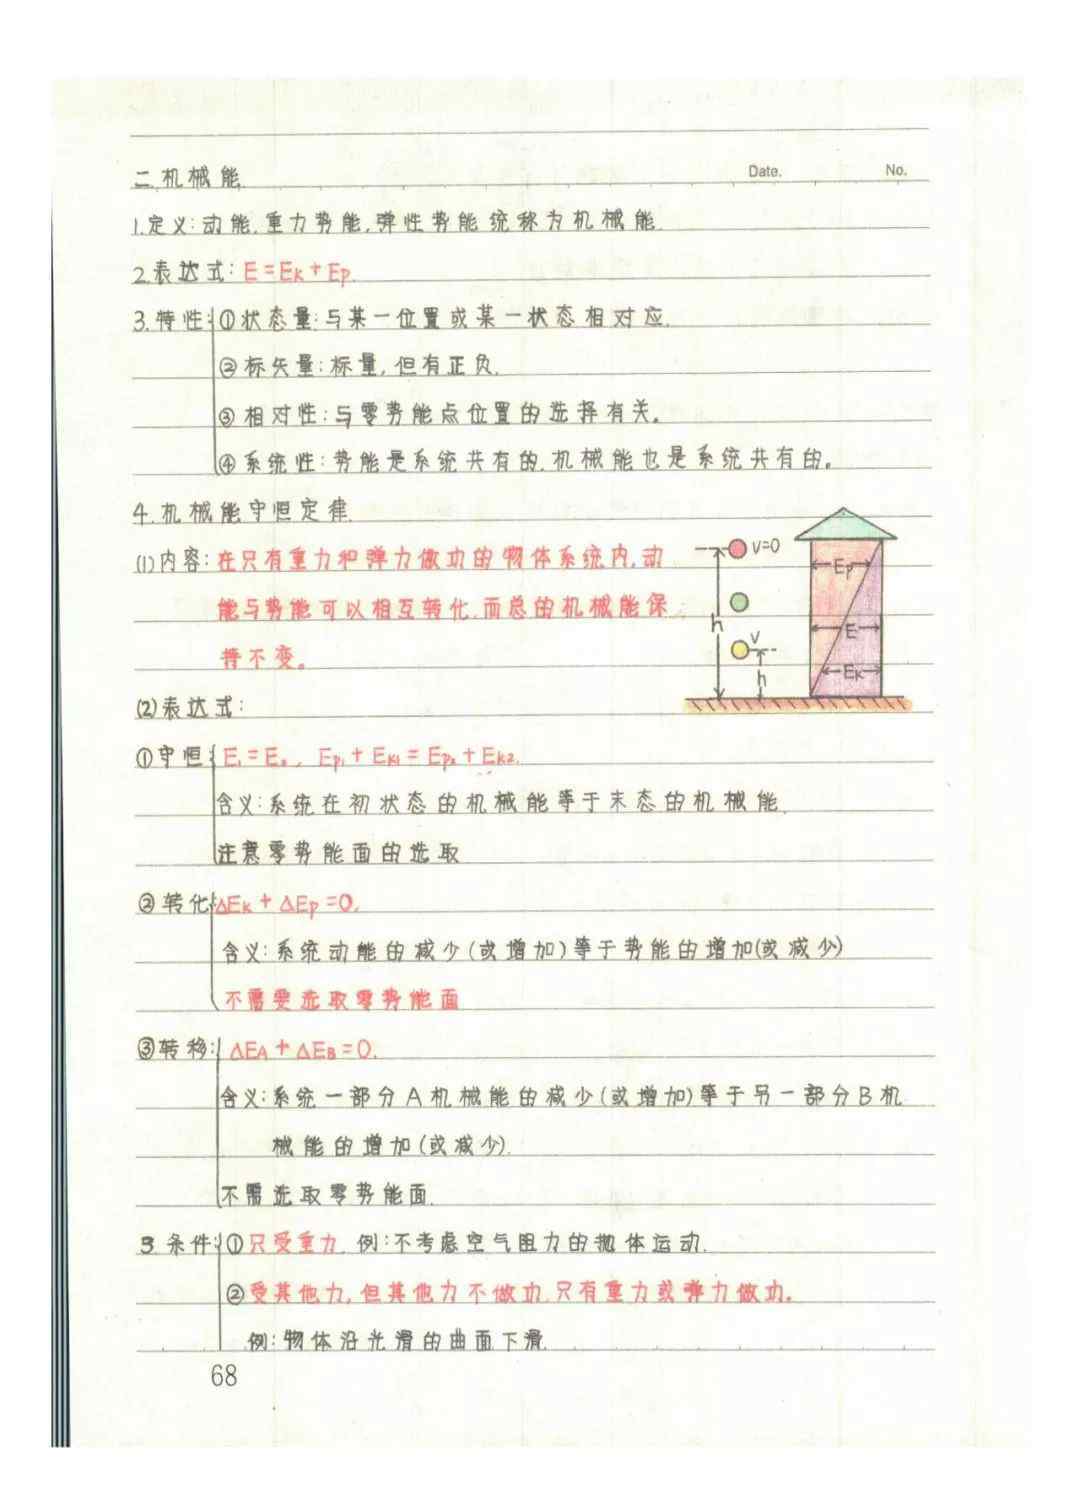 二.机械能 Date. No.
1.定义:动能.重力势能,弹性势能统称为机械能.
2.表达式: E=EK+EP.
3.特性:①状态量:与某一位置或某一状态相对应.
②标矢量:标量,但有正负.
③相对性:与零势能点位置的选择有关。
④系统性:势能是系统共有的.机械能也是系统共有的。
4.机械能守恒定律.
(1)内容:在只有重力和弹力做功的物体系统内,动
能与势能可以相互转化.而总的机械能保
持不变。
v=0
v
h
h
Ep
E
EK
(2)表达式:
①守恒: E₁=E₂, Ep₁+EK₁=Ep₂+EK2.
含义:系统在初状态的机械能等于末态的机械能.
注意零势能面的选取
②转化: ΔEK+ΔEp=0.
含义:系统动能的减少(或增加)等于势能的增加(或减少)
不需要选取零势能面
③转移: ΔEA+ΔEB=0.
含义:系统一部分A机械能的减少(或增加)等于另一部分B机
械能的增加(或减少).
不需选取零势能面.
3.条件:①只受重力.例:不考虑空气阻力的抛体运动.
②受其他力,但其他力不做功.只有重力或弹力做功。
例:物体沿光滑的曲面下滑.
68